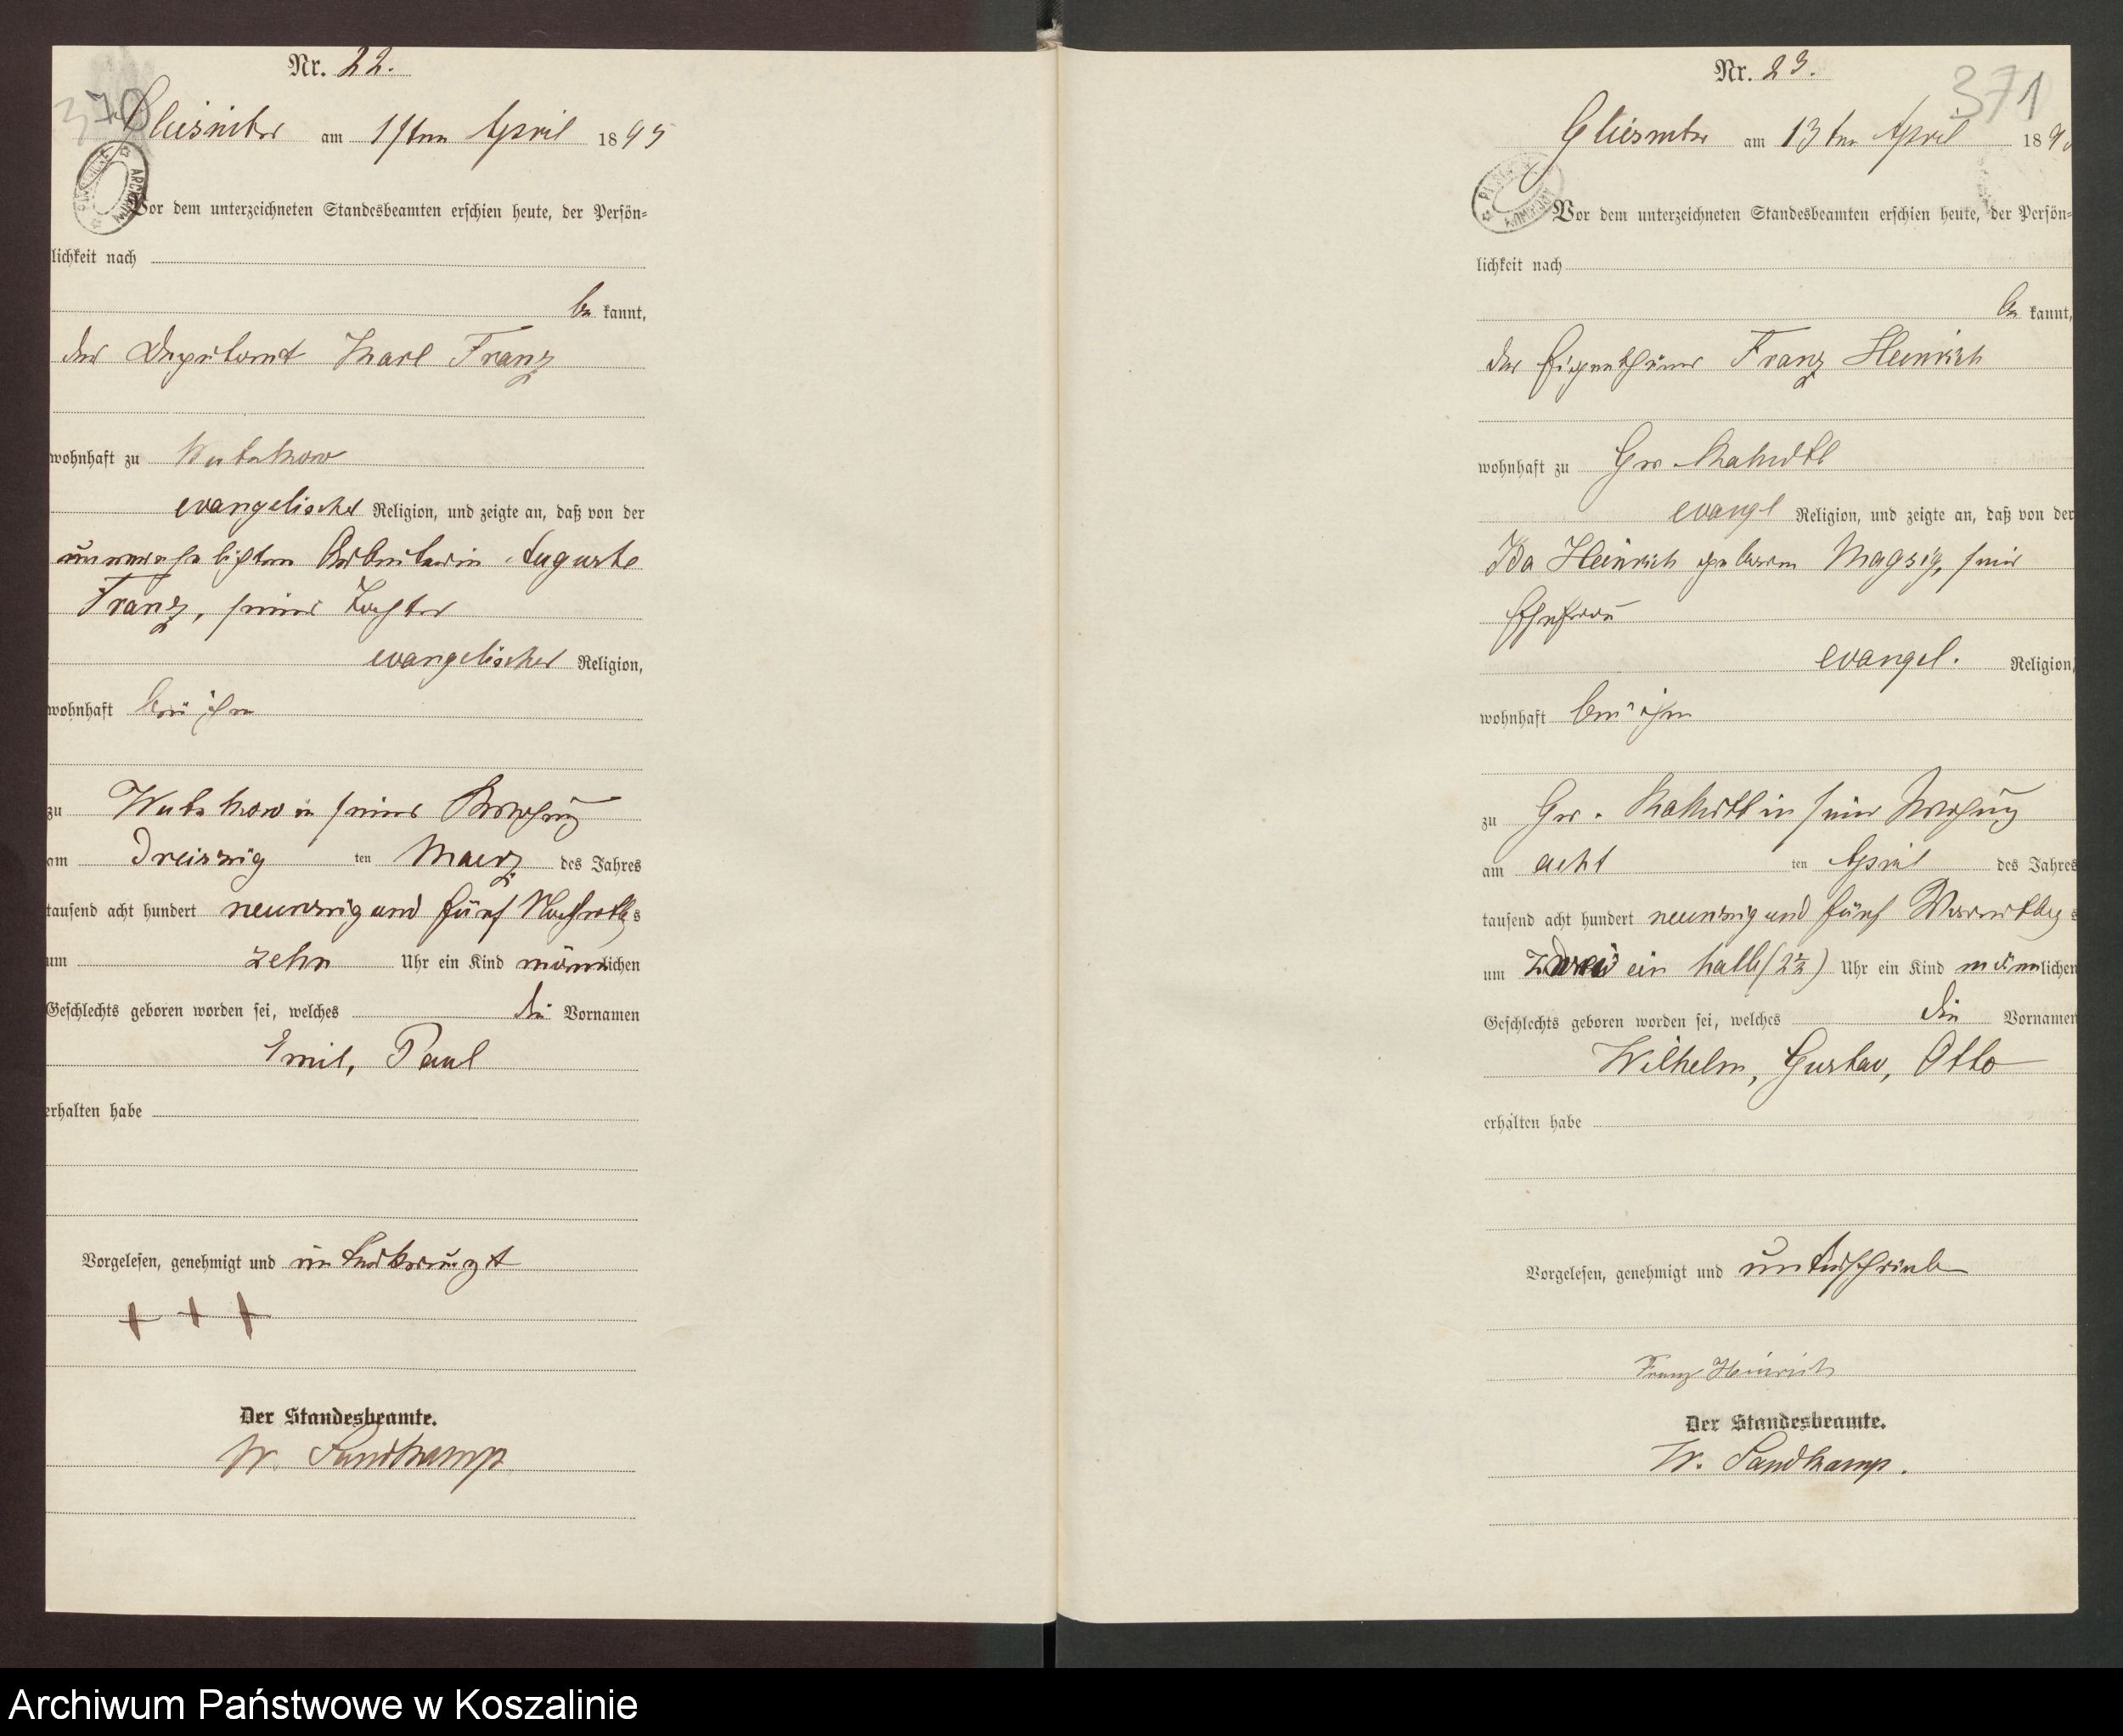 Nr. 22.
370
Gliesnitz am 1ten April 1895
Vor dem unterzeichneten Standesbeamten erschien heute, der Persön-
lichkeit nach
be kannt,
der Deputant Karl Franz
wohnhaft zu
evangelischer Religion, und zeigte an, daß von der
unverehelichten Arbeiterin Auguste
Franz, seiner Tochter
evangelischer Religion,
wohnhaft bei ihm
zu in seiner Wohnung
am dreiszig ten Maerz des Jahres
tausend acht hundert neunzig und fünf Nachmittags
um zehn Uhr ein Kind männlichen
Geschlechts geboren worden sei, welches die Vornamen
Emil, Paul
erhalten habe
Vorgelesen, genehmigt und unterkreuzt
+ + +
Der Standesbeamte.
W. Sandkamp
Nr. 23.
371
Gliesnitz am 13ten April 189
Vor dem unterzeichneten Standesbeamten erschien heute, der Persön-
lichkeit nach
be kannt,
der Eigenthümer Franz Heinrich
wohnhaft zu Gr.
evangl Religion, und zeigte an, daß von der
Ida Heinrich geborene Magzig, seiner
Ehefrau
evangel. Religion,
wohnhaft bei ihm
zu Gr. in seiner Wohnung
am acht ten April des Jahres
tausend acht hundert neunzig und fünf Vormittags
um zwei ein halb (2½) Uhr ein Kind männlichen
Geschlechts geboren worden sei, welches die Vornamen
Wilhelm, Gustav, Otto
erhalten habe
Vorgelesen, genehmigt und unterschrieben
Franz Heinrich
Der Standesbeamte.
W. Sandkamp.
Archiwum Państwowe w Koszalinie